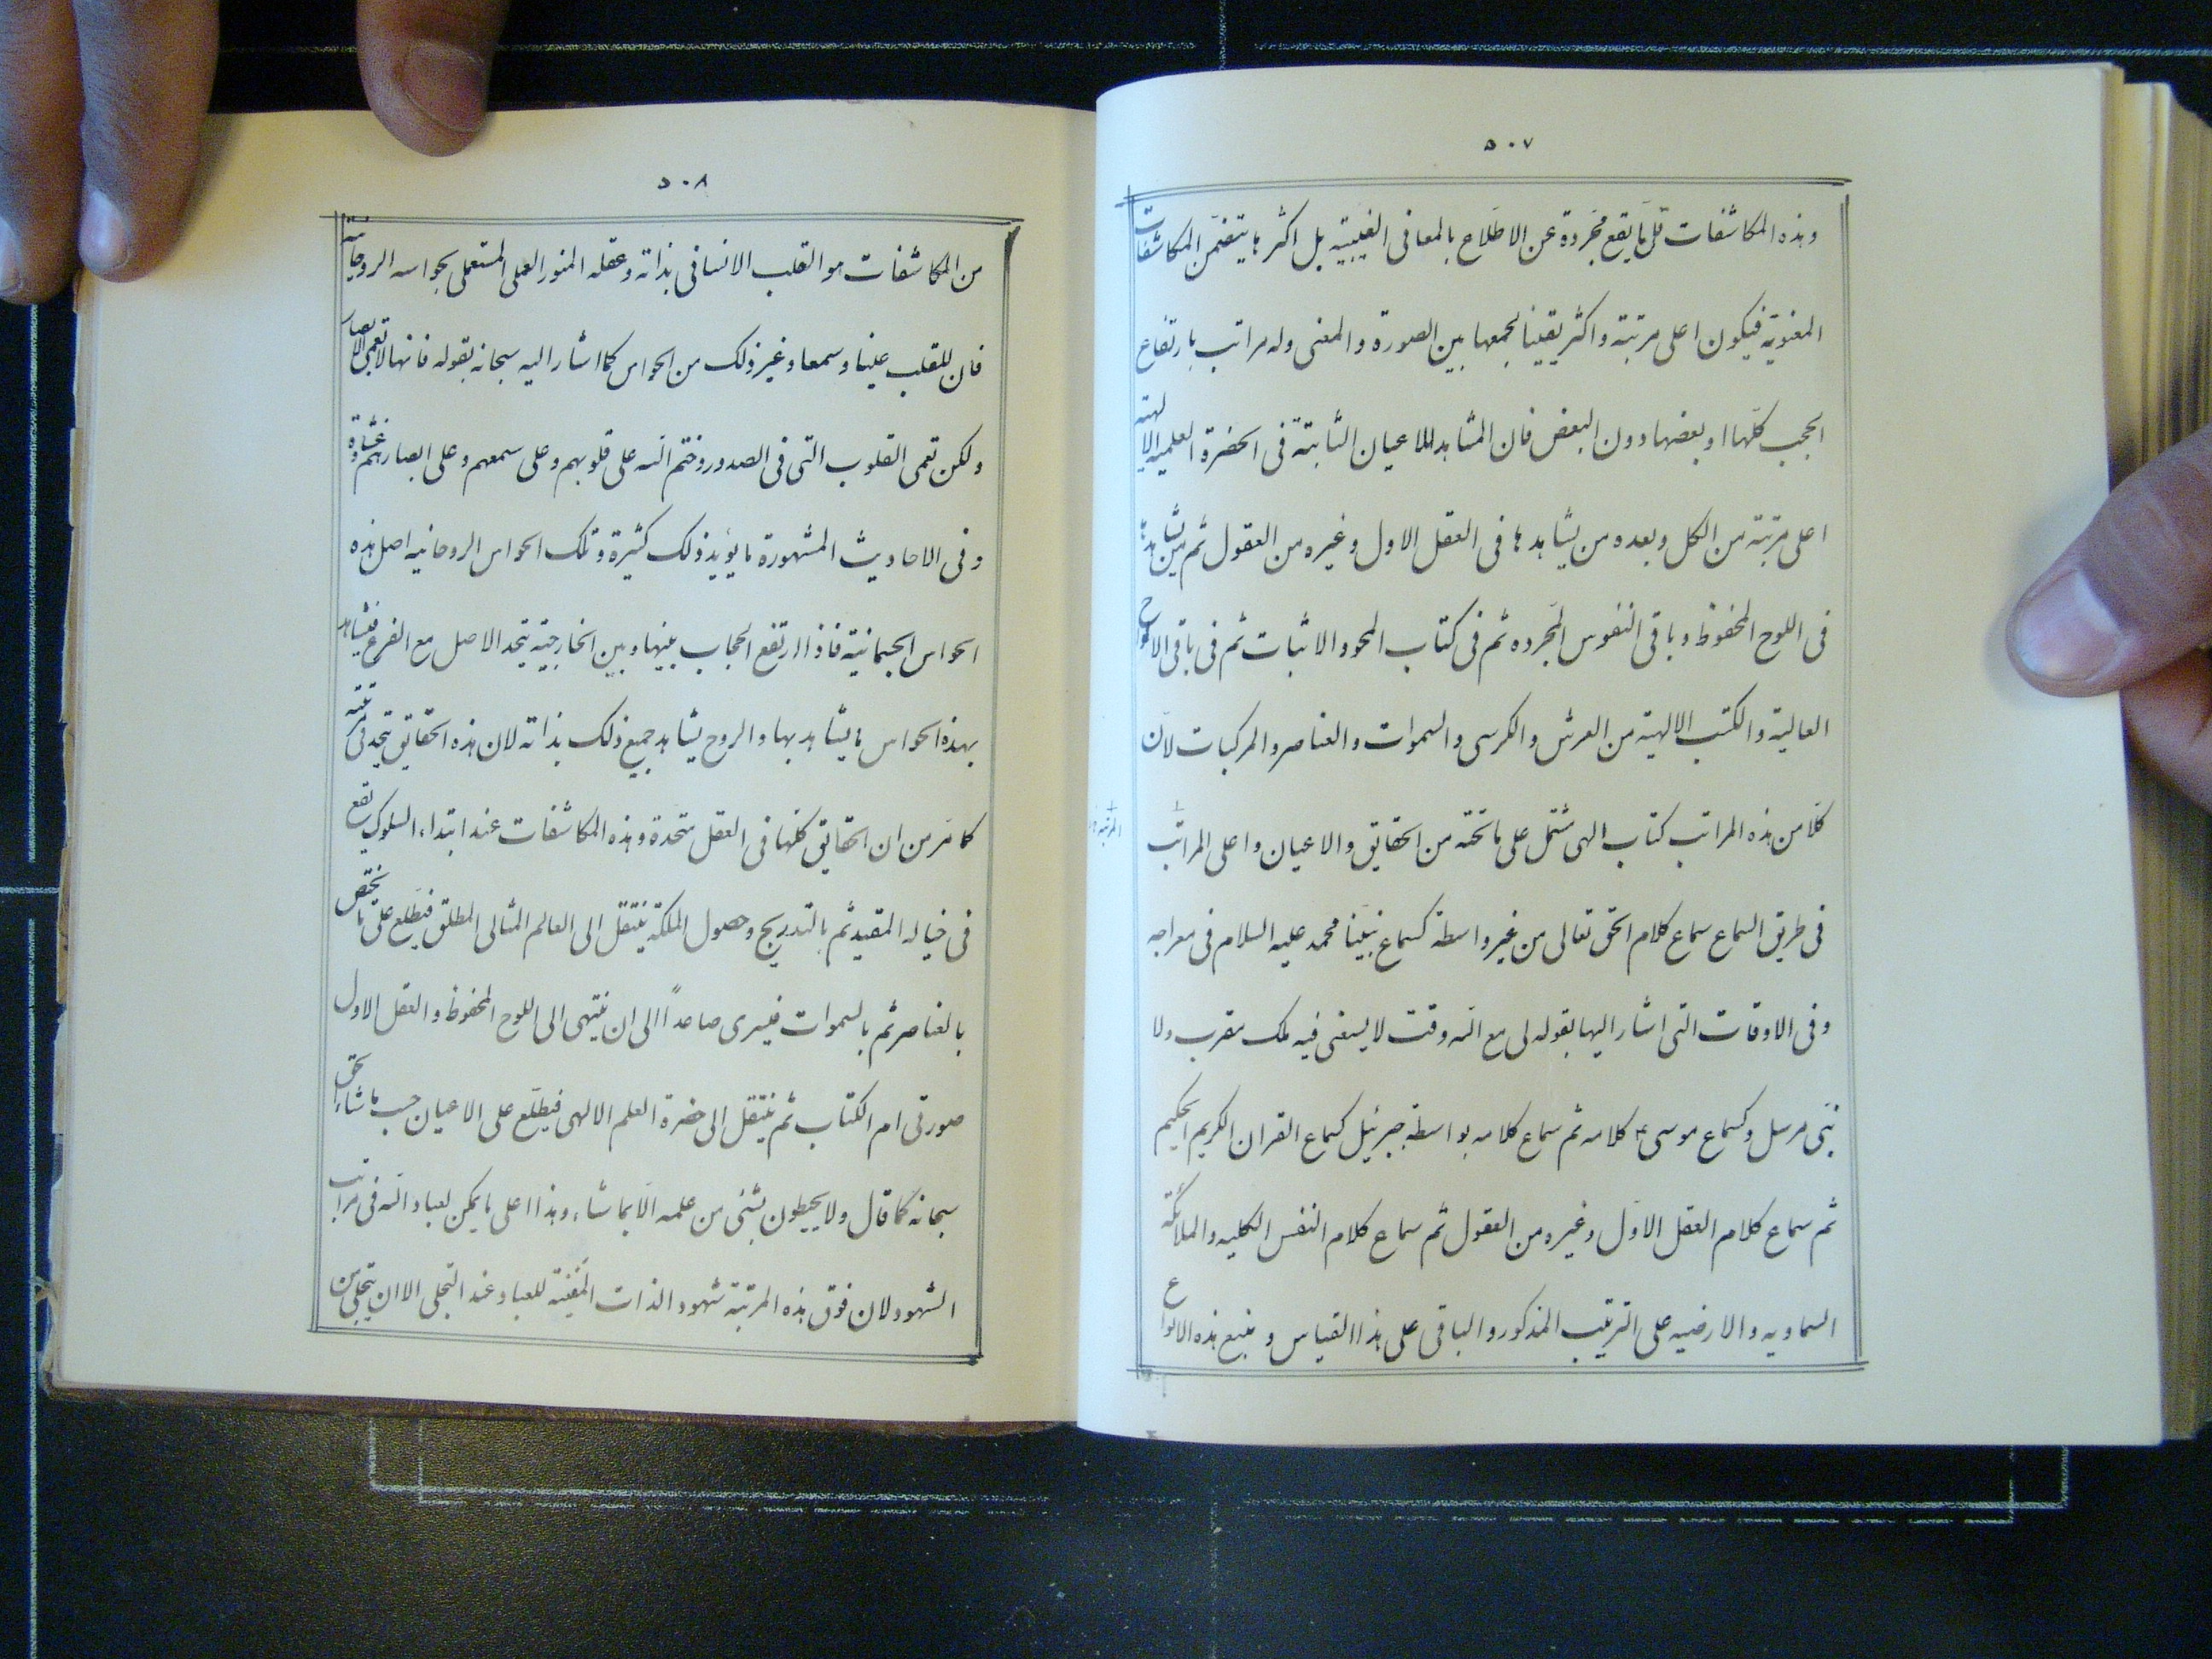 ٥٠٧
وهذه المكاشفات قلّ ما يقع مجردة عن الاطلاع بالمعانى الغيبية بل اكثرها يتضمّن المكاشفات
المعنوية فيكون اعلى مرتبة واكثر يقينا لجمعها بين الصورة والمعنى وله مراتب بارتفاع
الحجب كلّها او بعضها دون البعض فان المشاهد للاعيان الثابتة فى الحضرة العلمية الالهية
اعلى مرتبة من الكل وبعده من يشاهدها فى العقل الاول وغيره من العقول ثم من يشاهدها
فى اللوح المحفوظ وباقى النفوس المجرده ثم فى كتاب المحو والاثبات ثم فى باقى الارواح
العالية والكتب الالهية من العرش والكرسى والسموات والعناصر والمركبات لانّ
كلّا من هذه المراتب كتاب الهى مشتمل على ما تحته من الحقايق والاعيان واعلى المراتب
فى طريق السماع سماع كلام الحق تعالى من غير واسطة كسماع نبيّنا محمد عليه السلام فى معراجه
وفى الاوقات التى اشار اليها بقوله لى مع الله وقت لا يسعنى فيه ملك مقرب ولا
نبى مرسل وكسماع موسى ع كلامه ثم سماع كلامه بواسطة جبرئيل كسماع القران الكريم الحكيم
ثم سماع كلام العقل الاوّل وغيره من العقول ثم سماع كلام النفس الكليه والملائكة
السماويه والارضيه على الترتيب المذكور والباقى على هذا القياس ومنبع هذه الانواع
٥٠٨
من المكاشفات هو القلب الانسانى بذاته وعقله المنور العملى المستعمل بحواسه الروحانية
فان للقلب عينا وسمعا وغير ذلك من الحواس كما اشار اليه سبحانه بقوله فانها لا تعمى الابصار
ولكن تعمى القلوب التى فى الصدور وختم الله على قلوبهم وعلى سمعهم وعلى ابصارهم غشاوة
وفى الاحاديث المشهورة ما يؤيد ذلك كثيرة وتلك الحواس الروحانيه اصل هذه
الحواس الجسمانية فاذا ارتفع الحجاب بينها وبين الخارجية يتحد الاصل مع الفرع فيشاهد
بهذه الحواس ما يشاهد بها والروح يشاهد جميع ذلك بذاته لان هذه الحقايق تتحد فى مرتبته
كما مرّ من ان الحقايق كلّها فى العقل متحدة وهذه المكاشفات عند ابتداء السلوك تقع
فى خياله المقيد ثم بالتدريج وحصول الملكة ينتقل الى العالم المثالى المطلق فيطّلع على ما يختص
بالعناصر ثم بالسموات فيسرى صاعداً الى ان ينتهى الى اللوح المحفوظ والعقل الاول
صورتى ام الكتاب ثم ينتقل الى حضرة العلم الالهى فيطّلع على الاعيان حسب ما شاء الحق
سبحانه كما قال ولا يحيطون بشئ من علمه الّا بما شاء وهذا اعلى ما يمكن لعباد الله فى مراتب
الشهود لان فوق هذه المرتبة شهود الذات المفنية للعباد عند التجلى الا ان يتجلى من